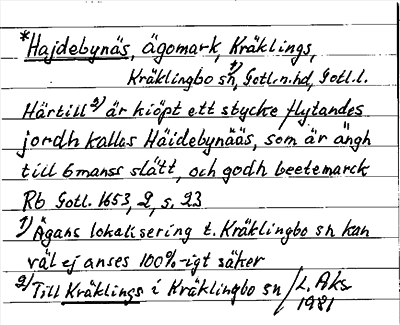 *Hajdebynäs, ägomark, Kräklings,
Kräklingbo sn¹⁾, Gotl.n.hd, Gotl.l.
Härtill²⁾ är kiöpt ett stycke flytandes
jordh kallas Häidebynääs, som är ängh
till 6 manss slått, och godh beetemarck
Rb Gotl. 1653, 2, s. 23
1) Ägans lokalisering t. Kräklingbo sn kan
väl ej anses 100%-igt säker
2) Till Kräklings i Kräklingbo sn / L. Aks
1981